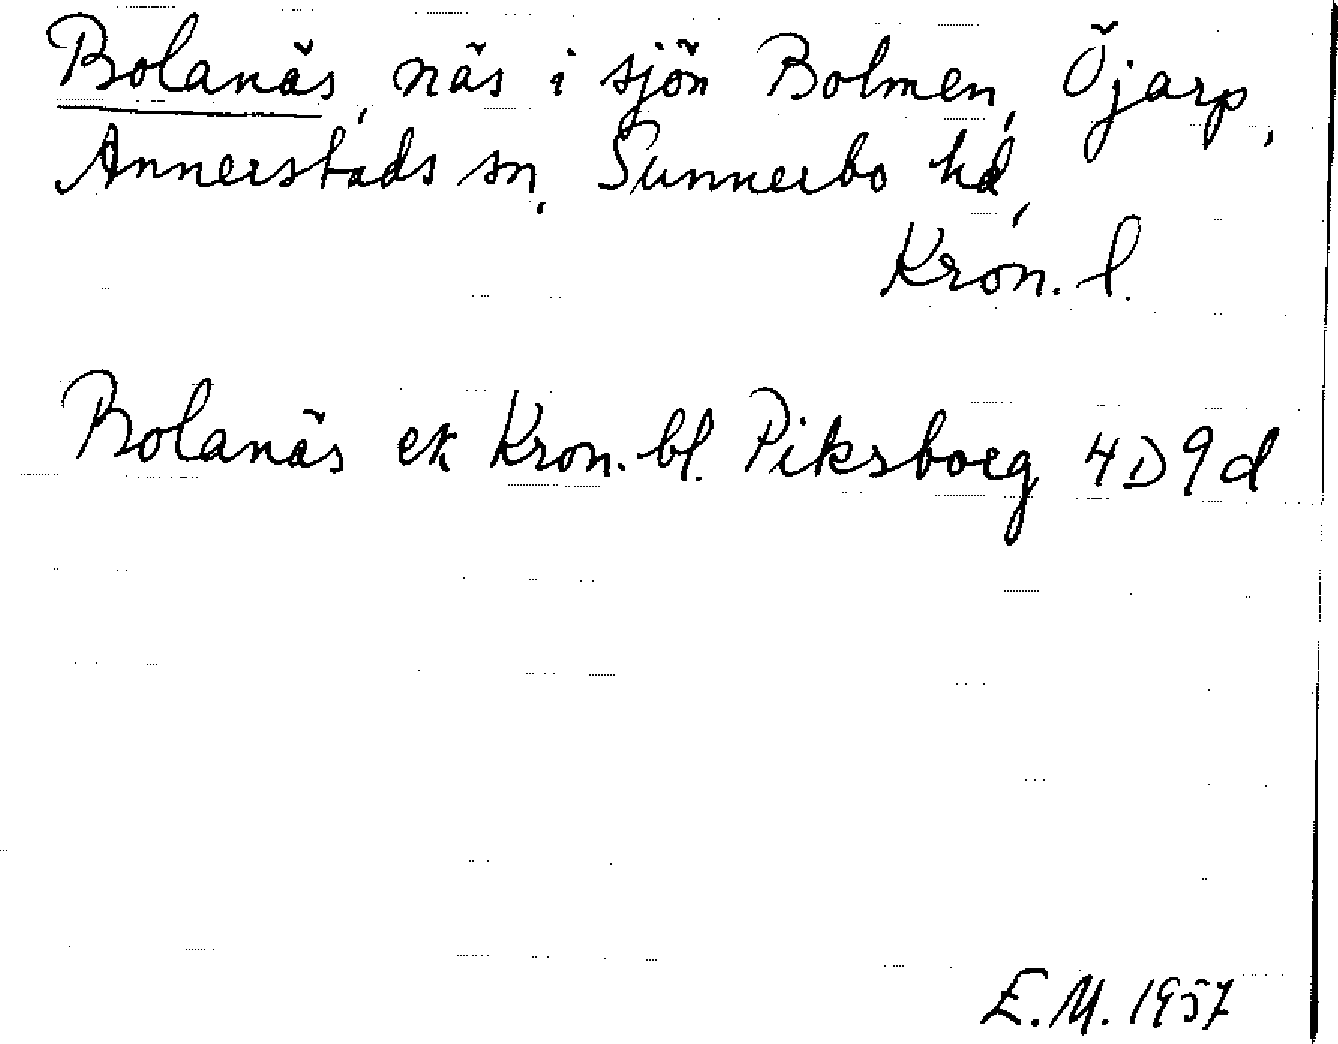 Bolanäs, näs i sjön Bolmen, Öjarp,
Annerstads sn, Sunnerbo hd,
Kron. l.
Bolanäs ek Kron. bl. Piksborg 4D9d
E.M. 1957